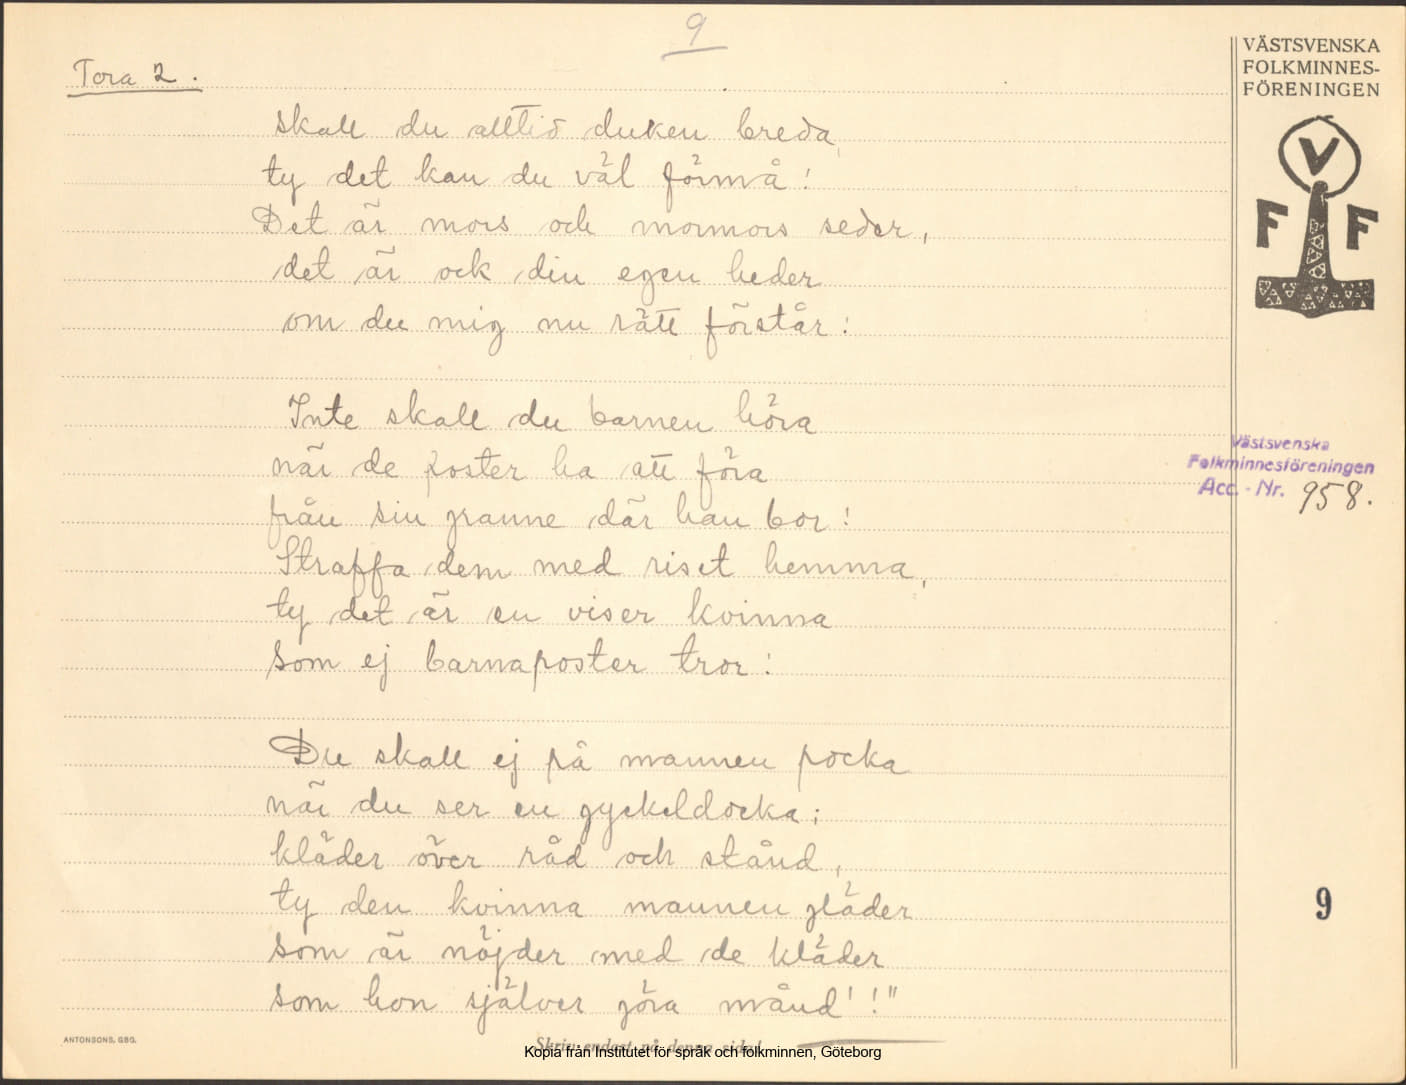 9
Tora 2.
VÄSTSVENSKA
FOLKMINNES-
FÖRENINGEN
V
F F
skall du alltid duken breda,
ty det kan du väl förmå!
Det är mors och mormors seder,
det är ock din egen heder
om du mig nu rätt förstår!
Inte skall du barnen höra
när de poster ha att föra
från sin granne där han bor!
Straffa dem med riset hemma,
ty det är en viser kvinna
som ej barnaposter tror!
Västsvenska
Folkminnesföreningen
Acc. - Nr. 958.
Du skall ej på mannen pocka
när du ser en gyckeldocka;
kläder över råd och stånd,
ty den kvinna mannen gläder
som är nöjder med de kläder
som hon själver göra månd'!"
9
ANTONSONS, GBG.
Skriv endast på denna sida!
Kopia från Institutet för språk och folkminnen, Göteborg